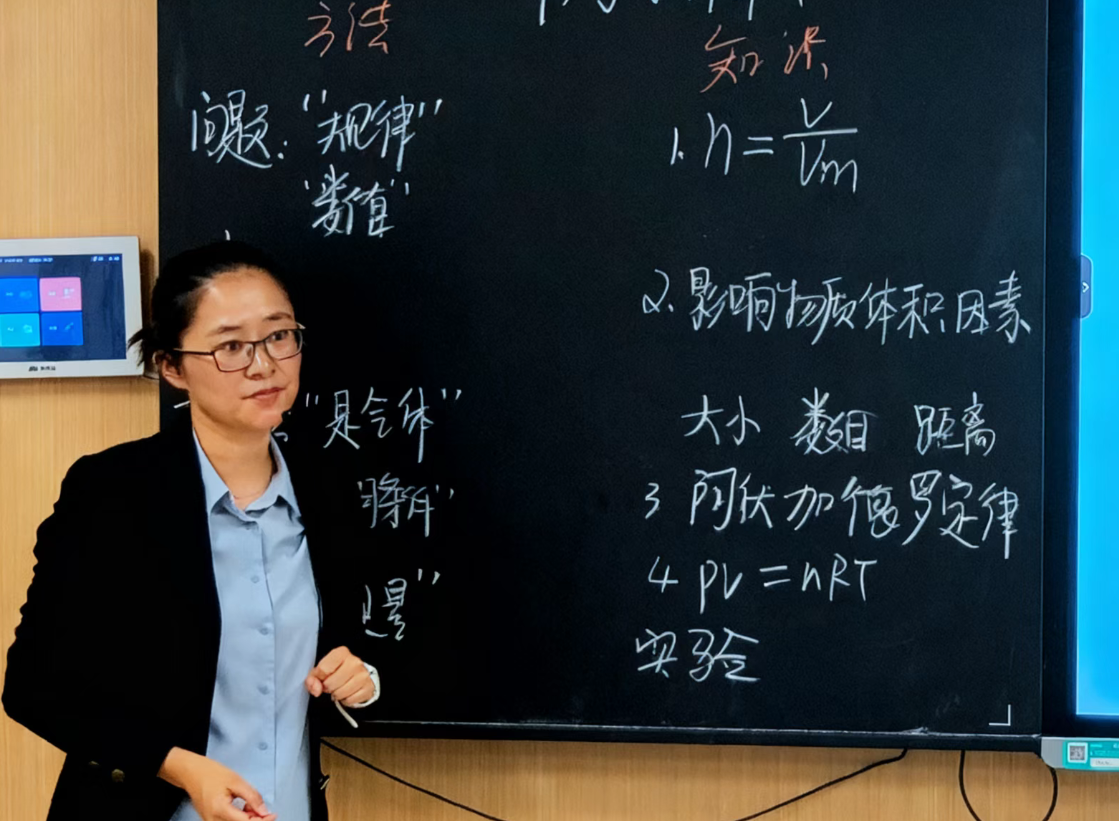 方法
问题：“规律”
“数值”
“是气体”
知识
1. n = V/Vm
2. 影响物质体积因素
大小 数目 距离
3 阿伏加德罗定律
4 PV = nRT
实验